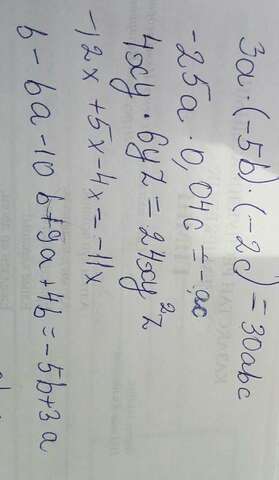 3a · (-5b) · (-2c) = 30abc
-25a · 0,04c = -ac
4xy · 6yz = 24xy²z
-12x + 5x - 4x = -11x
b - 6a - 10b + 9a + 4b = -5b + 3a